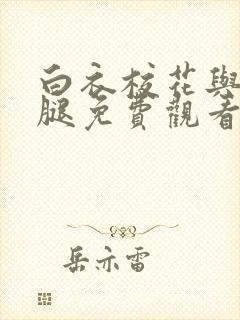 白衣校花與
腿免費觀看
岳亦雷